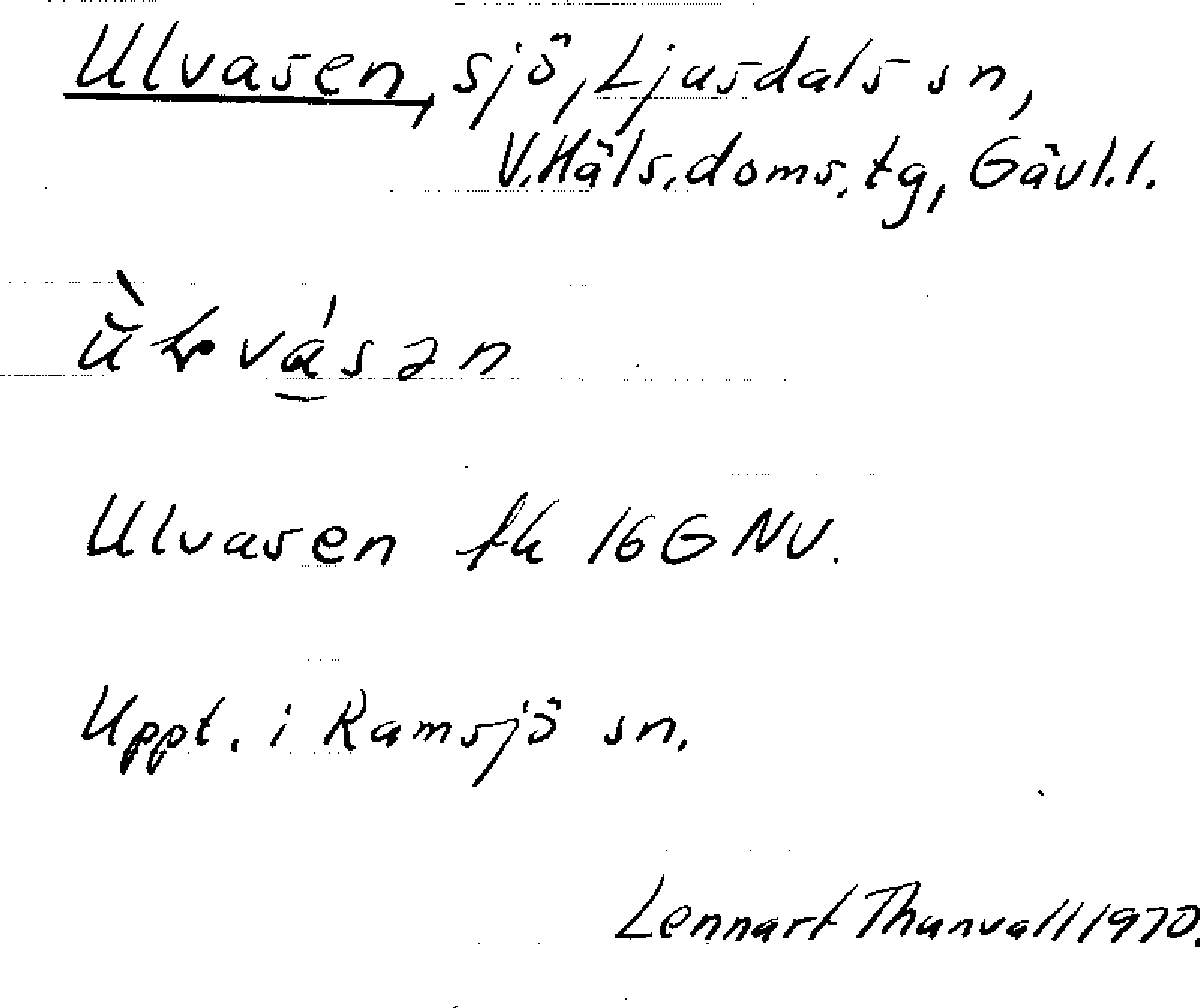 Ulvasen, sjö, Ljusdals sn,
V.Häls.doms.tg, Gävl.l.
Ulvasen fk 16G NV.
Uppt. i Ramsjö sn.
Lennart Thunvall 1970.